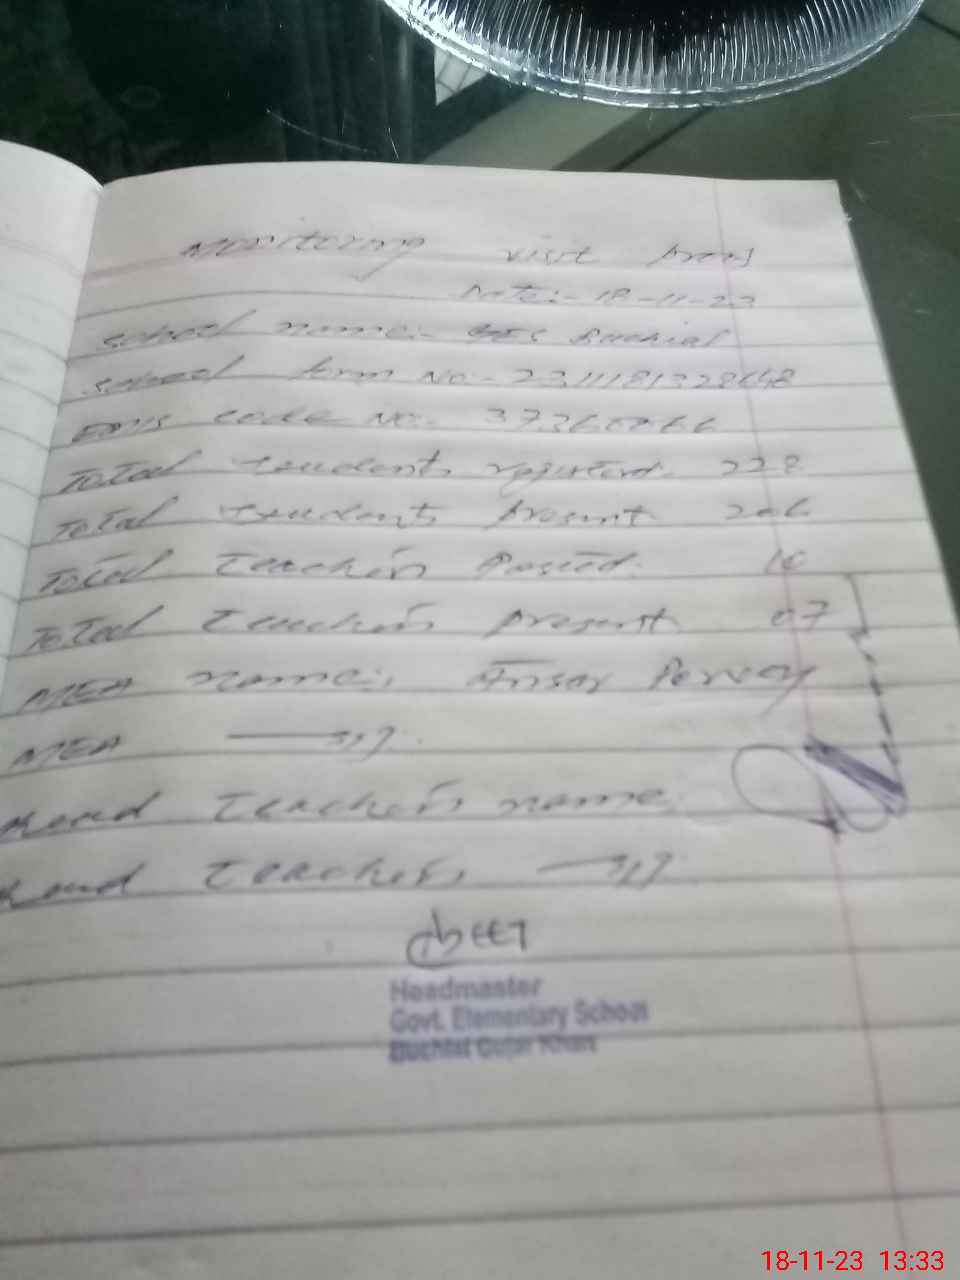 Monitoring visit
Date:- 18-11-23
School name:- GES
School form No:- 2311181328648
EMIS code No:-
Total students registerd. 228
Total students present 206
Total Teachers Posted. 10
Total Teachers present 07
MEA name:. Ansar Pervez
MEA
Head Teachers name.
Head Teachers
Headmaster
Govt. Elementary School
Buchial Gujar Khan
18-11-23 13:33